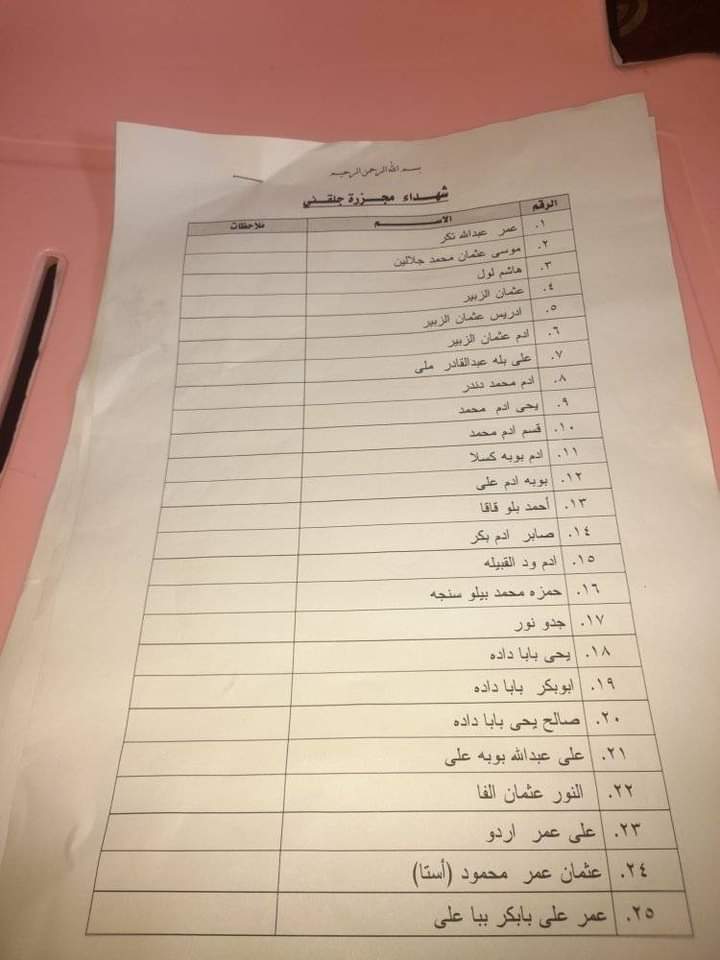 بسم الله الرحمن الرحيم
شهداء مجزرة جلقني
الرقم الاسم ملاحظات
١. عمر عبدالله تكر
٢. موسى عثمان محمد جلالين
٣. هاشم لول
٤. عثمان الزبير
٥. ادريس عثمان الزبير
٦. ادم عثمان الزبير
٧. على بله عبدالقادر ملى
٨. ادم محمد دندر
٩. يحى ادم محمد
١٠. قسم ادم محمد
١١. ادم بوبه كسلا
١٢. بوبه ادم على
١٣. أحمد بلو قاقا
١٤. صابر ادم بكر
١٥. ادم ود القبيله
١٦. حمزه محمد بيلو سنجه
١٧. جدو نور
١٨. يحى بابا داده
١٩. ابوبكر بابا داده
٢٠. صالح يحى بابا داده
٢١. على عبدالله بوبه على
٢٢. النور عثمان الفا
٢٣. على عمر اردو
٢٤. عثمان عمر محمود (أستا)
٢٥. عمر على بابكر ببا على